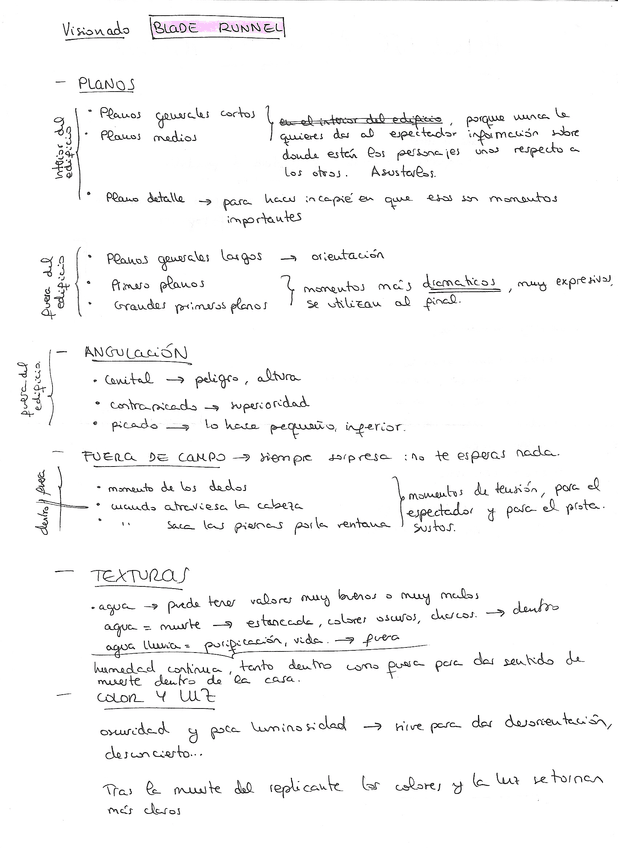 Visionado BLADE RUNNEL
- PLANOS
Interior del edificio
• Planos generales cortos
• Planos medios
en el interior del edificio, porque nunca le
quieres dar al espectador información sobre
donde están los personajes unos respecto a
los otros. Asustarlos.
• Plano detalle → para hacer incapié en que esos son momentos
importantes
fuera del edificio
• Planos generales largos → orientación
• Primero planos
• Grandes primeros planos
momentos más dramaticos, muy expresivos,
se utilizan al final.
fuera del edificio
- ANGULACIÓN
• cenital → peligro, altura
• contrapicado → superioridad
• picado → lo hace pequeño, inferior.
- FUERA DE CAMPO → siempre sorpresa: no te esperas nada.
dentro y fuera
• momento de los dedos
• cuando atraviesa la cabeza
• '' saca las piernas por la ventana
momentos de tensión, para el
espectador y para el prota.
sustos.
- TEXTURAS
• agua → puede tener valores muy buenos o muy malos
agua = muerte → estancada, colores oscuros, charcos. → dentro
agua lluvia = purificación, vida. → fuera
humedad continua, tanto dentro como fuera para dar sentido de
muerte dentro de la casa.
- COLOR Y LUZ
oscuridad y poca luminosidad → sirve para dar desorientación,
desconcierto...
Tras la muerte del replicante los colores y la luz se tornan
más claros